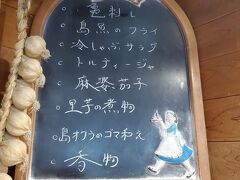 亀刺し
島魚のフライ
冷しゃぶサラダ
トルティージャ
麻婆茄子
里芋の煮物
島オクラのゴマ和え
香物